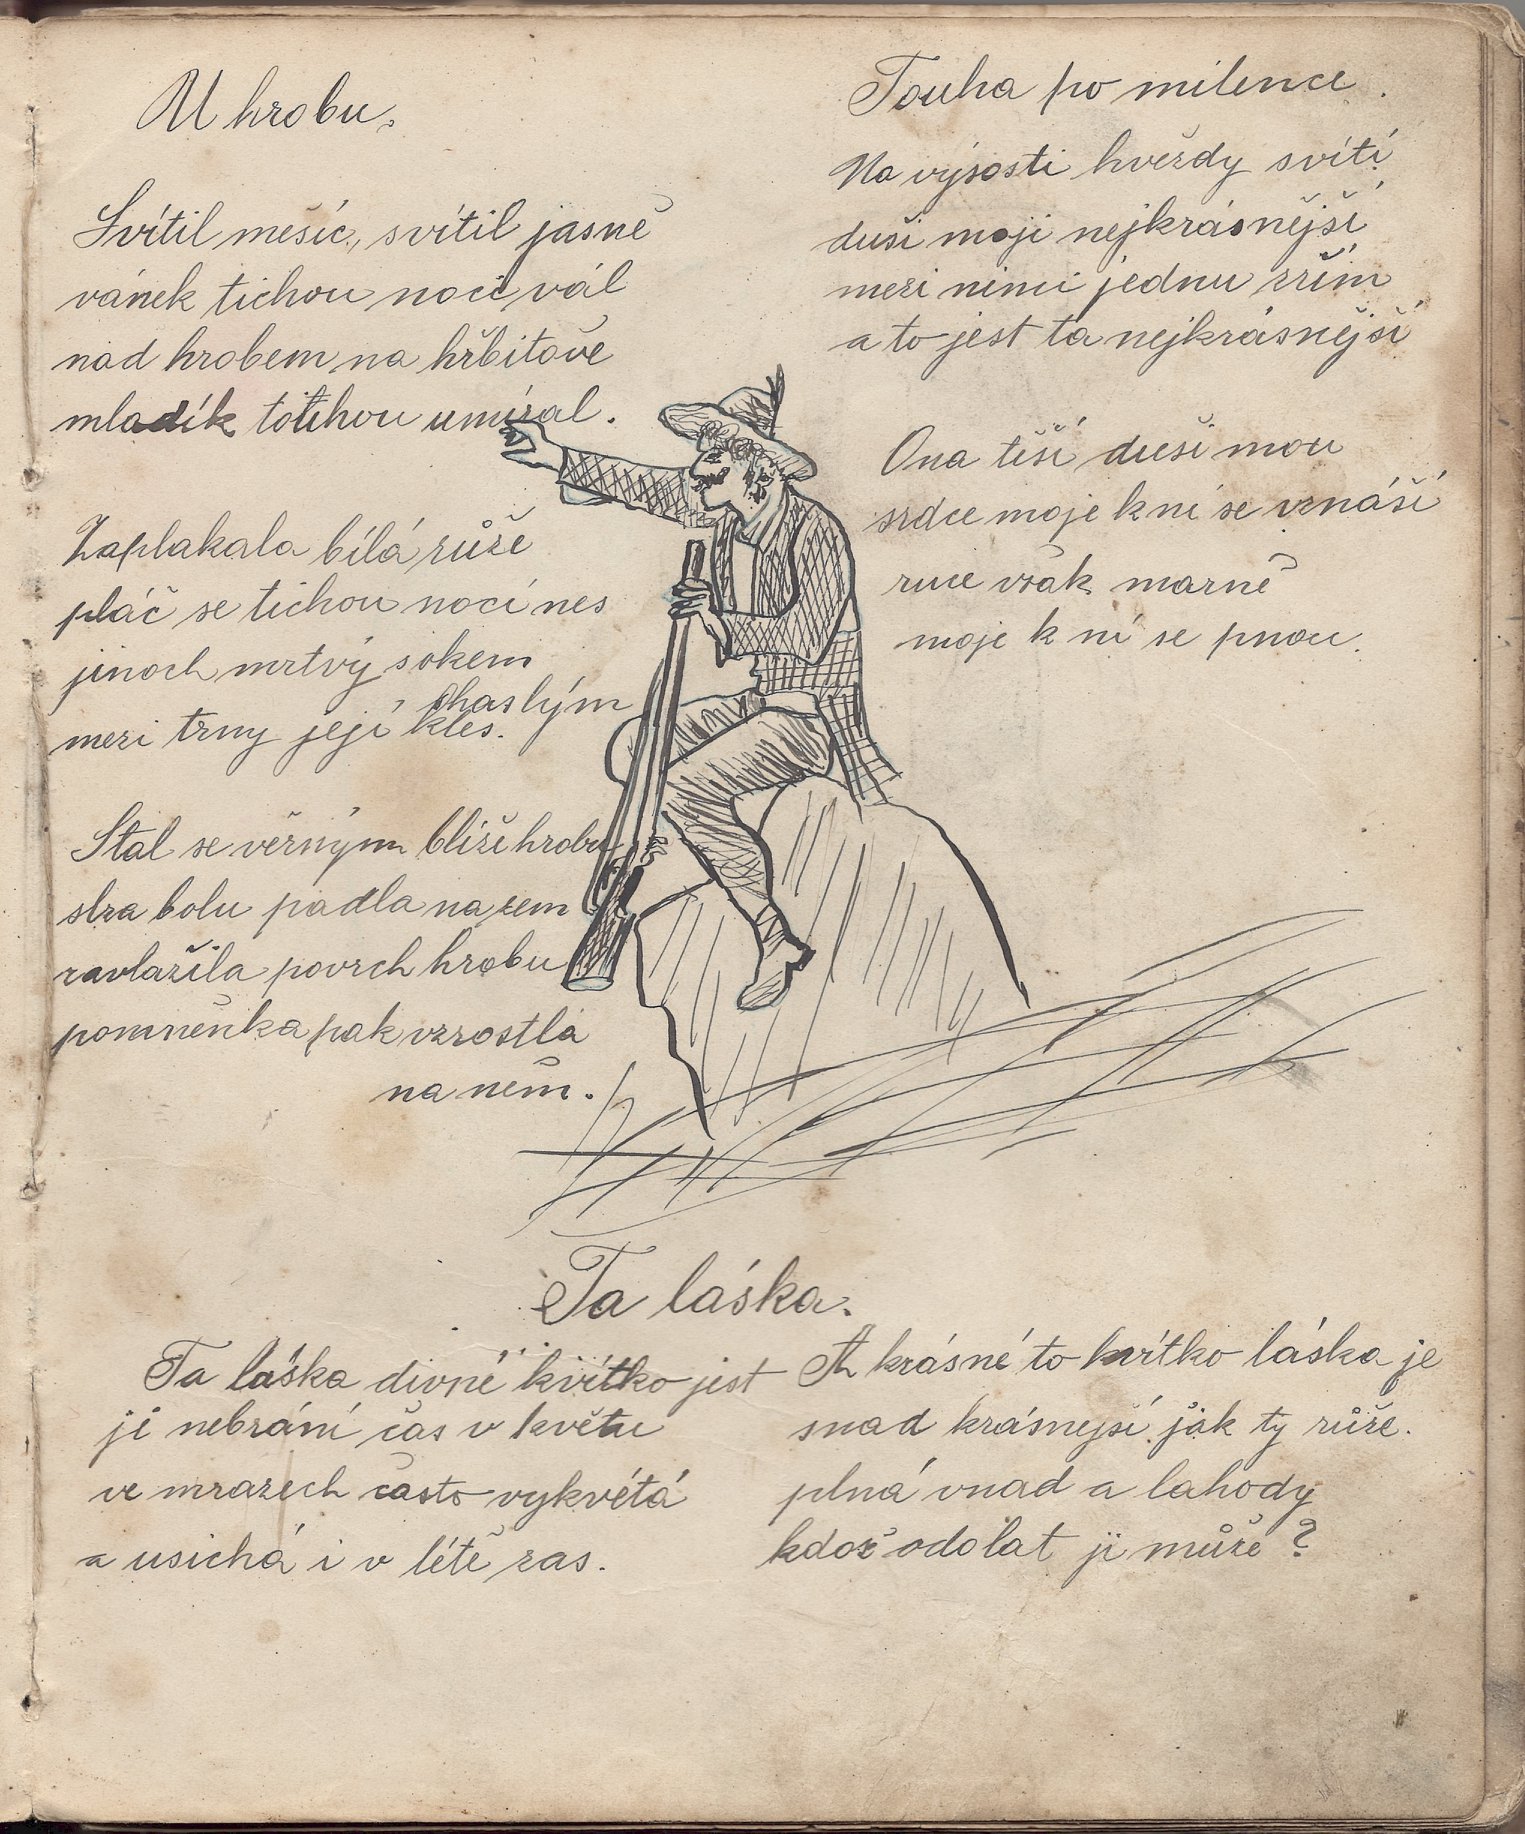 U hrobu.
Svítil mešíc, svítil jasně
vánek tichou nocí vál
nad hrobem na hřbitově
mladík touhou umíral.
Zaplakala bílá růže
pláč se tichou nocí nes
jinoch mrtvý s okem
ohaslým
mezi trny její kles.
Stál se věrným blíže hrobu
slza bolu padla na zem
zavlažila povrch hrobu
pomněnka pak vzrostla
na něm.
Touha po milence.
Na výsosti hvězdy svítí
duši moji nejkrásnější
mezi nimi jednu zřím
a to jest ta nejkrásnější
Ona těší duši mou
srdce moje k ní se vznáší
ruce však marně
moje k ní se pnou.
Ta láska.
Ta láska divné kvítko jest
jí nebrání čas v květu
ve mrazech často vykvétá
a usichá i v létě zas.
Ah krásné to kvítko láska je
snad krásnejší jak ty růže.
plná vnad a lahody
kdož odolat jí může?